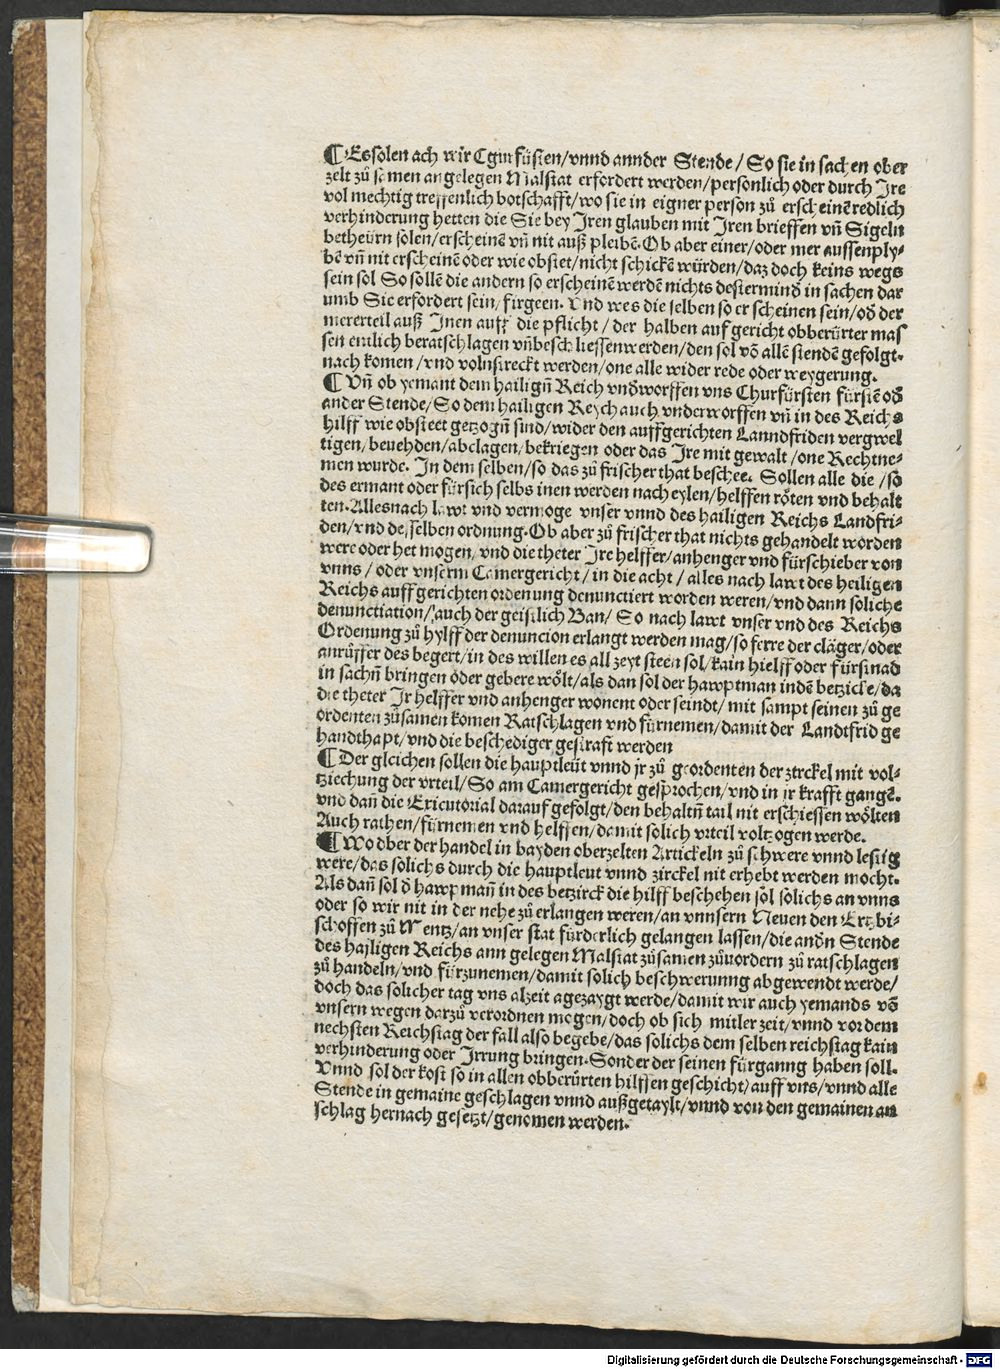 ¶ Es solen ach wir Cgurfüsten/vnnd annder Stende/So sie in sachen ober
zelt zů samen angelegen Malstat erfordert werden/persönlich oder durch Jre
vol mechtig treffenlich botschafft/wo sie in eigner person zů erscheinē redlich
verhinderung hetten die Sie bey Jren glauben mit Jren brieffen vñ Sigeln
betheürn solen/erscheinē vñ nit auß pleibē. Ob aber einer/oder mer aussenply-
bē vñ nit erscheinē oder wie obstet/nicht schickē würden/daz doch keins wegs
sein sol So sollē die andern so erscheinē werdē nichts destermind̄ in sachen dar
umb Sie erfordert sein/fürgeen. Vnd wes die selben so er scheinen sein/od̄ der
mererteil auß Jnen auff die pflicht/der halben auf gericht obberürter mas
sen entlich beratschlagen vñ beschliessen werden/den sol vō allē stendē gefolgt.
nach komen/vnd volnstreckt werden/one alle wider rede oder weygerung.
¶ Vñ ob yemant dem hailigñ Reich vnd̄worffen vns Churfürsten fürstē od̄
ander Stende/So dem hailigen Reych auch vnderworffen vñ in des Reichs
hilff wie obsteet getzogñ sind/wider den auffgerichten Lanndfriden vergwel
tigen/beuehden/abclagen/bekriegen oder das Jre mit gewalt/one Rechtne-
men wurde. Jn dem selben/so das zů frischer that beschee. Sollen alle die/so
des ermant oder fürsich selbs inen werden nach eylen/helffen rôten vnd behalt
ten. Alles nach lawt vnd vermoge vnser vnnd des hailigen Reichs Landfri-
den/vnd desselben ordnung. Ob aber zů frischer that nichts gehandelt worden
were oder het mogen/vnd die theter Jre helffer/anhenger vnd fürschieber von
vnns/oder vnserm Camergericht/in die acht/alles nach lawt des heiligen
Reichs auff gerichten ordenung denunctiert worden weren/vnd dann soliche
denunctiation/auch der geistlich Ban/So nach lawt vnser vnd des Reichs
Ordenung zů hylff der denuncion erlangt werden mag/so ferre der cläger/oder
anrüffer des begert/in des willen es all zeyt steen sol/kain hielff oder fürstnad
in sachñ bringen oder gebere wôlt/als dan sol der hawptman indē betzicke/da
die theter Jr helffer vnd anhenger wonent oder seindt/mit sampt seinen zů ge
ordenten zůsamen komen Ratschlagen vnd fürnemen/damit der Landtfrid ge
handthapt/vnd die beschediger gestraft werden
¶ Der gleichen sollen die hauptleüt vnnd jr zů geordenten der ztrckel mit vol-
tziechung der vrteil/So am Camergericht gesprochen/vnd in jr krafft gangē.
vnd dañ die Exicutorial darauf gefolgt/den behaltñ tail nit erschiessen wôlten
Auch rathen/fürnemen vnd helffen/damit solich vrteil voltzogen werde.
¶ Wo dber der handel in bayden oberzelten Artickeln zů schwere vnnd lestig
were/das solichs durch die hauptleut vnnd zirckel nit erhebt werden mocht.
Als dañ sol d̄ hawpmañ in des betzirck die hilff beschehen sol solichs an vnns
oder so wir nit in der nehe zů erlangen weren/an vnnsern Neuen den Ertzbi-
schoffen zů Mentz/an vnser stat fürderlich gelangen lassen/die and̄n Stende
des hailigen Reichs ann gelegen Malstat zůsamen zůuordern zů ratschlagen
zů handeln/vnd fürzunemen/damit solich beschwerunng abgewendt werde/
doch das solicher tag vns alzeit agezaygt werde/damit wir auch yemands vō
vnsern wegen darzů verordnen mogen/doch ob sich mitler zeit/vnnd vor dem
nechsten Reichstag der fall also begebe/das solichs dem selben reichstag kain
verhinderung oder Jrrung bringen. Sonder der seinen fürganng haben soll.
Vnnd sol der kost so in allen obberürten hilffen geschicht/auff vns/vnnd alle
Stende in gemaine geschlagen vnnd außgetaylt/vnnd von den gemainen an
schlag hernach gesetzt/genomen werden.
Digitalisierung gefördert durch die Deutsche Forschungsgemeinschaft - DFG